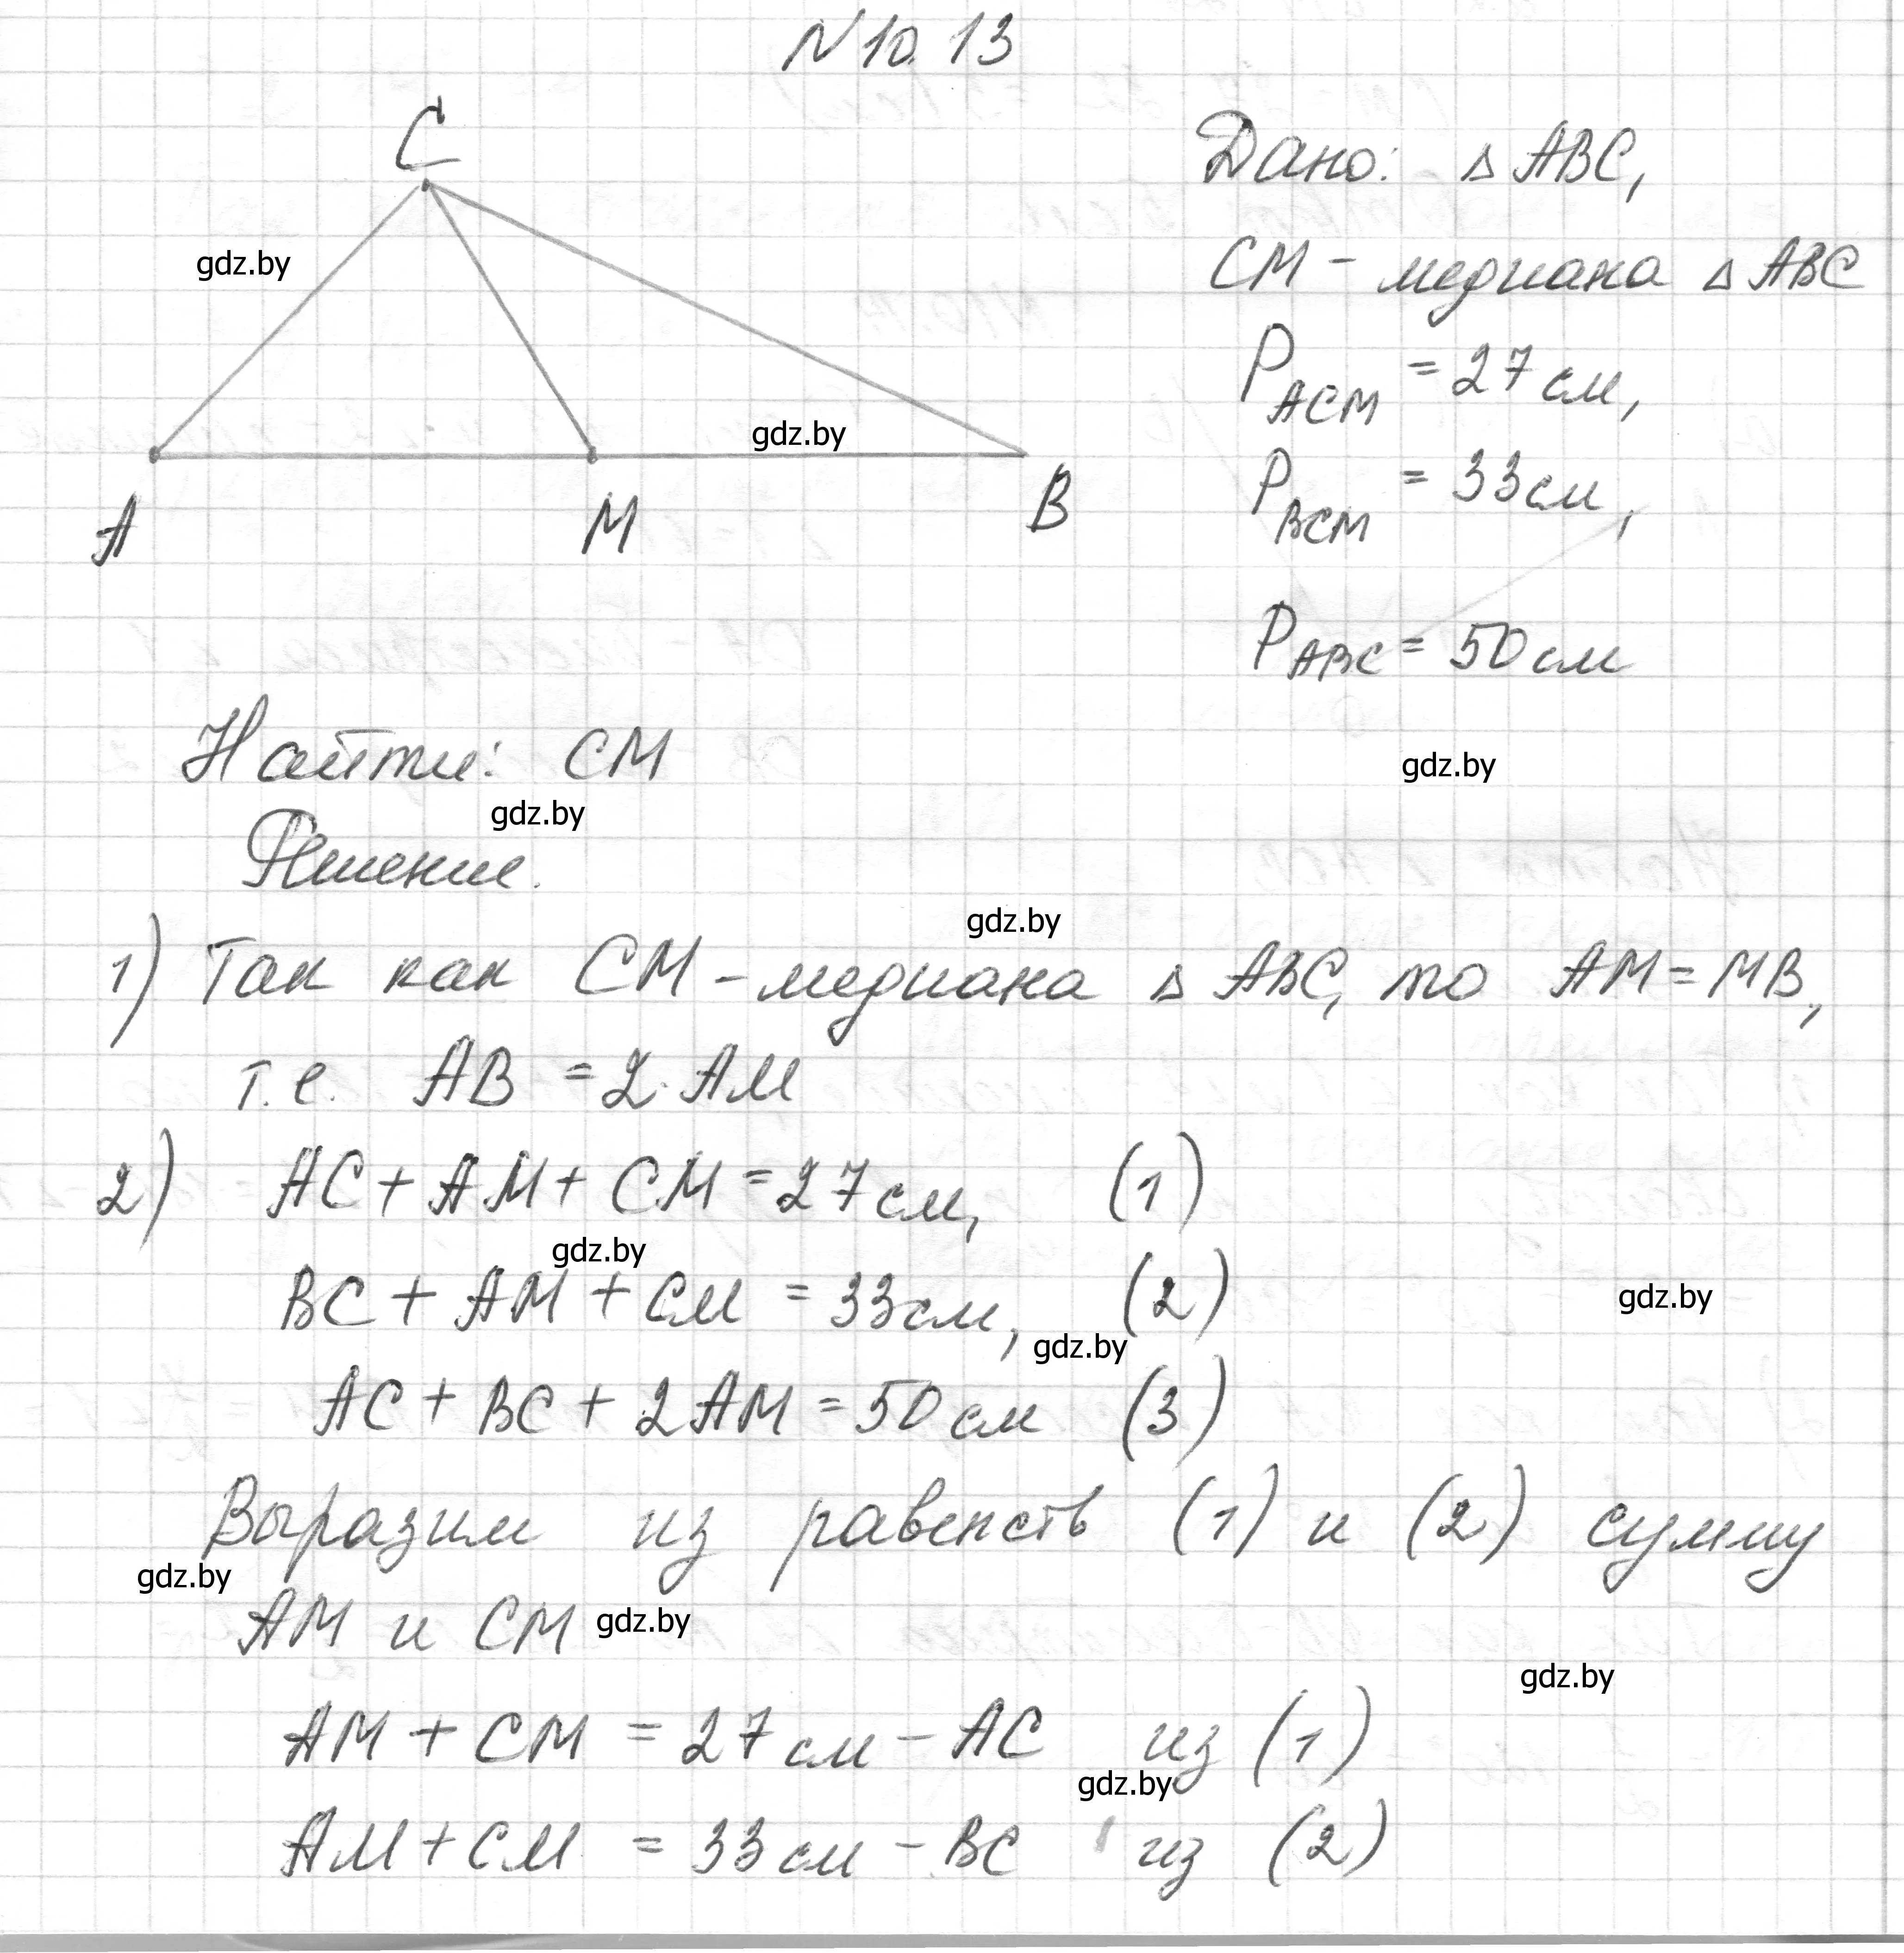 N 10.13
C
Дано: △ ABC,
gdz.by
CM - медиана △ ABC
P ACM = 27 см,
gdz.by
A M B
P BCM = 33 см,
P ABC = 50 см
Найти: CM
gdz.by
gdz.by
Решение.
gdz.by
1) Так как CM - медиана △ ABC, то AM = MB,
т.е. AB = 2·AM
2) AC + AM + CM = 27 см, (1)
gdz.by
BC + AM + CM = 33 см, (2)
gdz.by
gdz.by
AC + BC + 2AM = 50 см (3)
Выразим из равенств (1) и (2) сумму
gdz.by
AM и CM
gdz.by
gdz.by
AM + CM = 27 см - AC из (1)
gdz.by
AM + CM = 33 см - BC из (2)